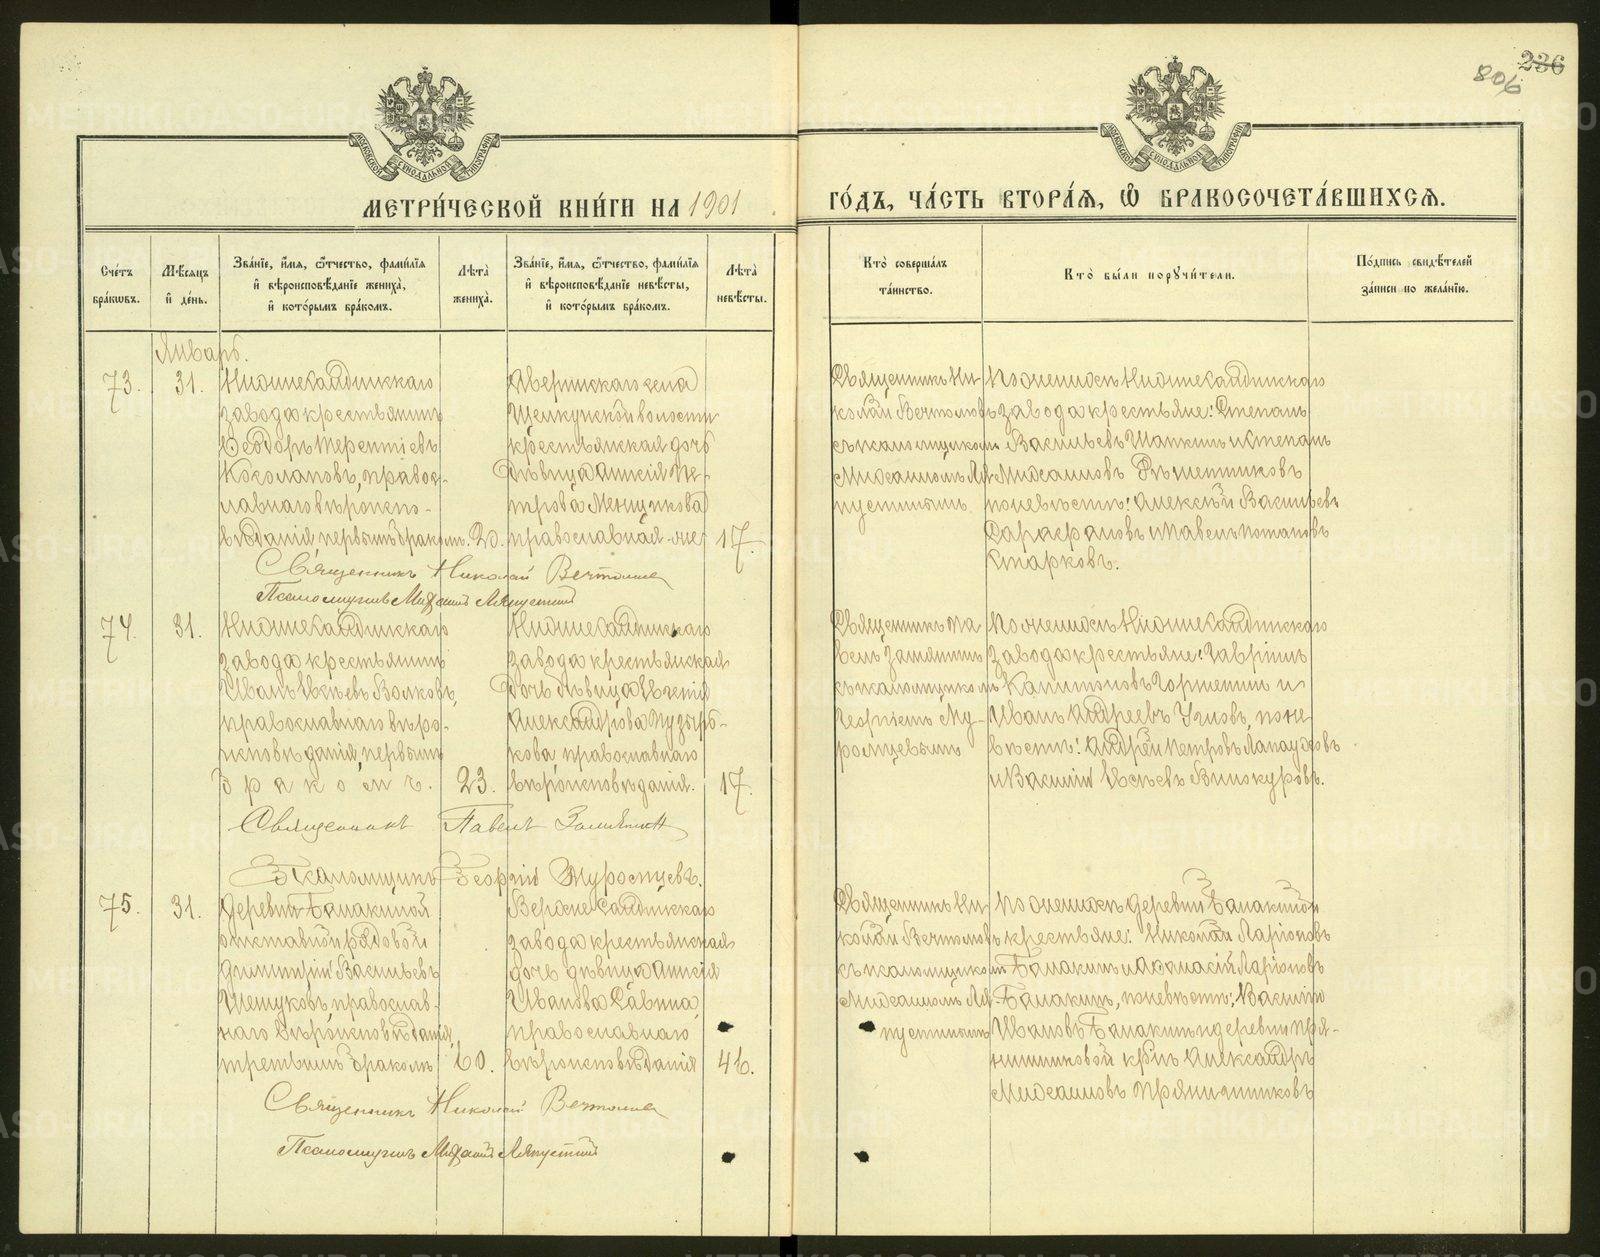 236
806
МОСКОВСКОЙ СѴНОДАЛЬНОЙ ТИПОГРАФІИ
МОСКОВСКОЙ СѴНОДАЛЬНОЙ ТИПОГРАФІИ
МЕТРИ́ЧЕСКОЙ КНИ́ГИ НА 1901
ГО́ДЪ, ЧА́СТЬ ВТОРА́Я, Ѽ БРАКОСОЧЕТА́ВШИХСЯ.
Сче́тъ бра́кѡвъ.
Мѣ́сяцъ и҆ де́нь.
Зва́нїе, и҆́мя, ѻ҆́тчество, фами́лїя и҆ вѣроисповѣ́данїе жениха̀, и҆ кото́рымъ бра́комъ.
Лѣ́та жениха̀.
Зва́нїе, и҆́мя, ѻ҆́тчество, фами́лїя и҆ вѣроисповѣ́данїе невѣ́сты, и҆ кото́рымъ бра́комъ.
Лѣ́та невѣ́сты.
Кто̀ соверша́лъ та́инство.
Кто̀ бы́ли порꙋчи́тели.
По́дпись свидѣ́телей за́писи по жела́нїю.
Январь.
73.
31.
Нижнесалдинскаго
завода крестьянинъ
Ѳеодоръ Терентіевъ
Косолаповъ, правос-
лавнаго вѣроиспо-
вѣданія первымъ бракомъ.
20.
Аверинскаго села
Щелкунской волости
крестьянская дочь
дѣвица Анисія Пе-
трова Меньщикова
православная-же
17.
Священникъ Ни-
колай Бечтомовъ
съ псаломщикомъ
Михаиломъ Ля-
пустинымъ
По женихѣ Нижнесалдинскаго
завода крестьяне: Степанъ
Васильевъ Шапкинъ и Степанъ
Михаиловъ Рѣшетниковъ
по невѣстѣ: Алексѣй Васильевъ
и Павелъ Потаповъ
Старковъ.
Священникъ Николай
Псаломщикъ Михаилъ Ляпустинъ
74.
31.
Нижнесалдинскаго
завода крестьянинъ
Иванъ Волковъ,
православнаго вѣро-
исповѣданія, первымъ
бракомъ.
23.
Нижнесалдинскаго
завода крестьянская
дочь дѣвица Евгенія
Александрова Пузырь-
кова, православнаго
вѣроисповѣданія.
17.
Священникъ Па-
велъ Замятинъ
съ псаломщикомъ
Георгіемъ Му-
ромцевымъ
По женихѣ Нижнесалдинскаго
завода крестьяне: Гавріилъ
Капитоновъ и
Иванъ Андреевъ по не-
вѣстѣ: Андрей Петровъ
и Василій Винокуровъ.
Священникъ Павелъ Замятинъ
Псаломщикъ Георгій Муромцевъ.
75.
31.
Деревни Балакиной
отставной рядовой
Димитрій Васильевъ
Шешуковъ, православ-
наго вѣроисповѣданія,
третьимъ бракомъ
60.
Верхнесалдинскаго
завода крестьянская
дочь дѣвица Анисія
Иванова Савина,
православнаго
вѣроисповѣданія
46.
Священникъ Ни-
колай Бечтомовъ
съ псаломщикомъ
Михаиломъ Ля-
пустинымъ
По женихѣ деревни Балакиной
крестьяне: Николай Ларіоновъ
Балакинъ и Аѳанасій Ларіоновъ
Балакинъ, по невѣстѣ: Василій
Ивановъ Балакинъ и деревни Пря-
нишниковой кр-нъ Александръ
Михаиловъ Прянишниковъ
Священникъ Николай
Псаломщикъ Михаилъ Ляпустинъ
METRIKI.GASO-URAL.RU